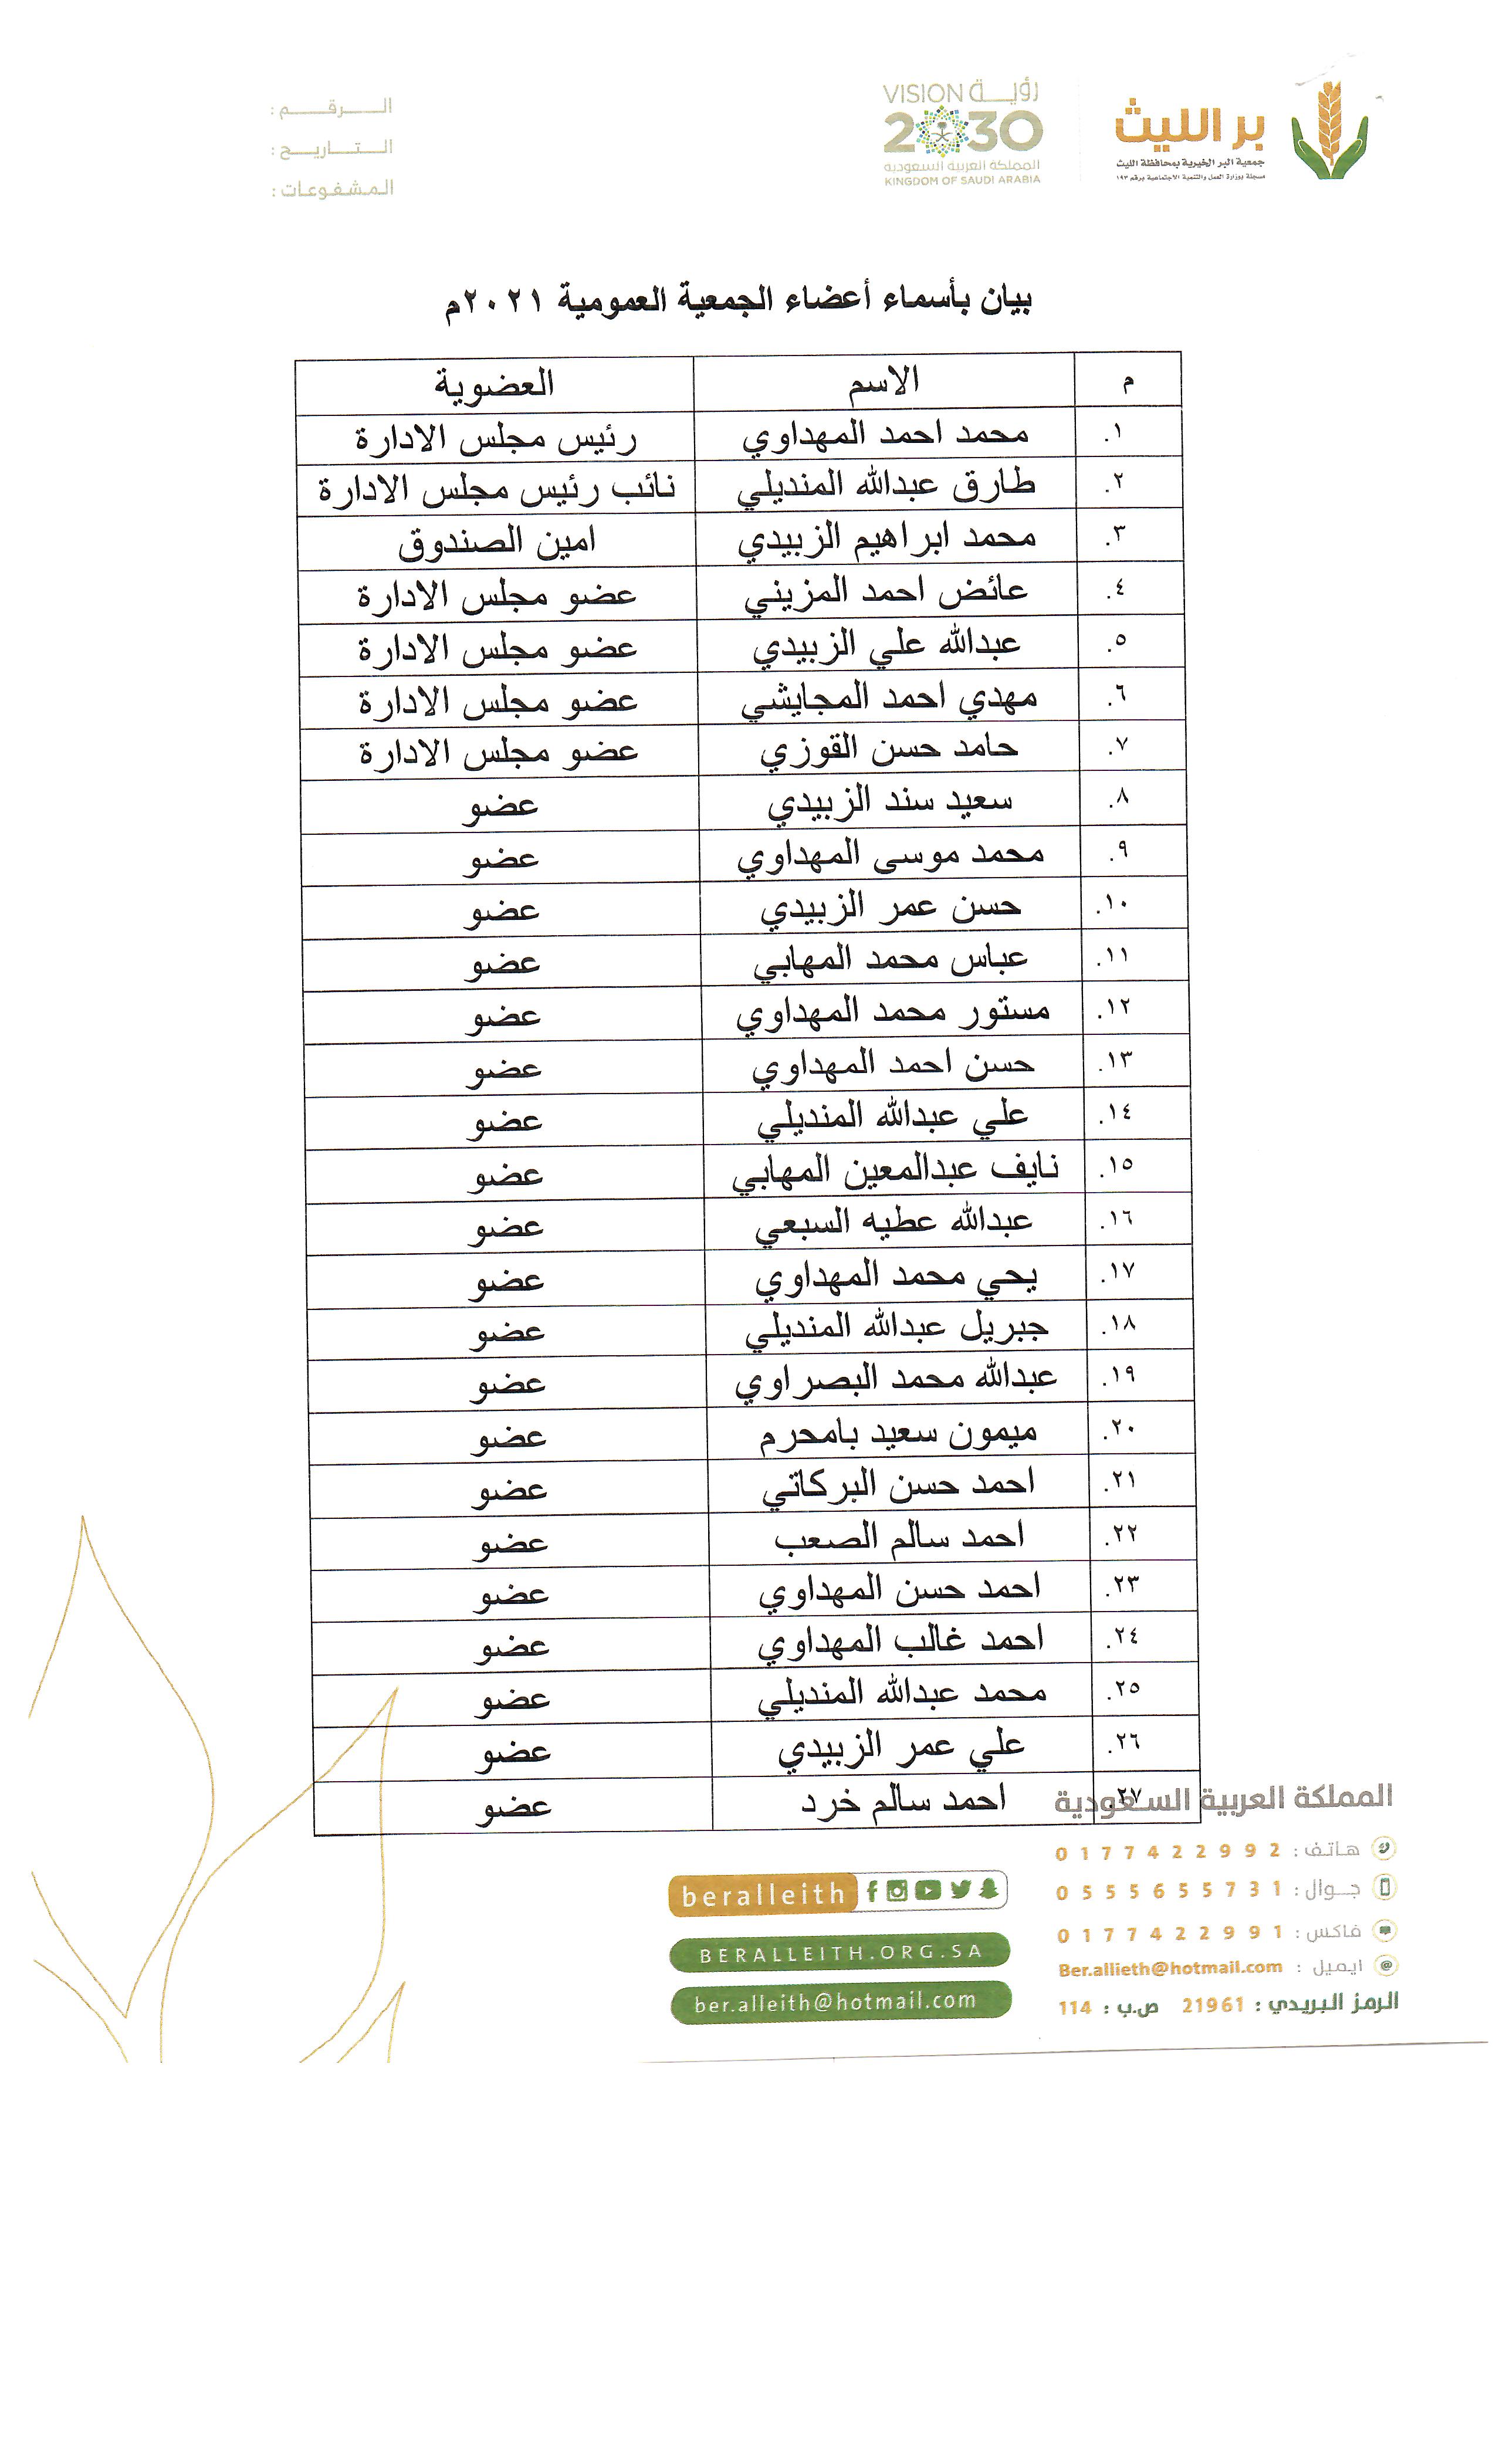 بر الليث
جمعية البر الخيرية بمحافظة الليث
مسجلة بوزارة العمل والتنمية الاجتماعية برقم ١٩٣
رؤيـــة VISION
2030
المملكة العربية السعودية
KINGDOM OF SAUDI ARABIA
الـــــرقـــــم :
الـتـــاريـــح :
المـشفـوعـات :
بيان بأسماء أعضاء الجمعية العمومية ٢٠٢١م
م الاسم العضوية
١. محمد احمد المهداوي رئيس مجلس الادارة
٢. طارق عبدالله المنديلي نائب رئيس مجلس الادارة
٣. محمد ابراهيم الزبيدي امين الصندوق
٤. عائض احمد المزيني عضو مجلس الادارة
٥. عبدالله علي الزبيدي عضو مجلس الادارة
٦. مهدي احمد المجايشي عضو مجلس الادارة
٧. حامد حسن القوزي عضو مجلس الادارة
٨. سعيد سند الزبيدي عضو
٩. محمد موسى المهداوي عضو
١٠. حسن عمر الزبيدي عضو
١١. عباس محمد المهابي عضو
١٢. مستور محمد المهداوي عضو
١٣. حسن احمد المهداوي عضو
١٤. علي عبدالله المنديلي عضو
١٥. نايف عبدالمعين المهابي عضو
١٦. عبدالله عطيه السبعي عضو
١٧. يحي محمد المهداوي عضو
١٨. جبريل عبدالله المنديلي عضو
١٩. عبدالله محمد البصراوي عضو
٢٠. ميمون سعيد بامحرم عضو
٢١. احمد حسن البركاتي عضو
٢٢. احمد سالم الصعب عضو
٢٣. احمد حسن المهداوي عضو
٢٤. احمد غالب المهداوي عضو
٢٥. محمد عبدالله المنديلي عضو
٢٦. علي عمر الزبيدي عضو
٢٧. احمد سالم خرد عضو
المملكة العربية السعودية
هـاتـف : 0177422992
جــوال : 0555655731
فاكس : 0177422991
ايميل : Ber.allieth@hotmail.com
الرمز البريدي : 21961 ص.ب : 114
beralleith
BERALLEITH.ORG.SA
ber.alleith@hotmail.com